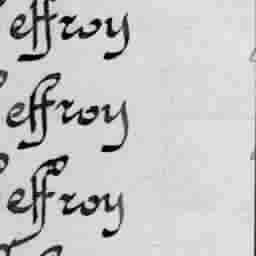 effroy
effroy
effroy